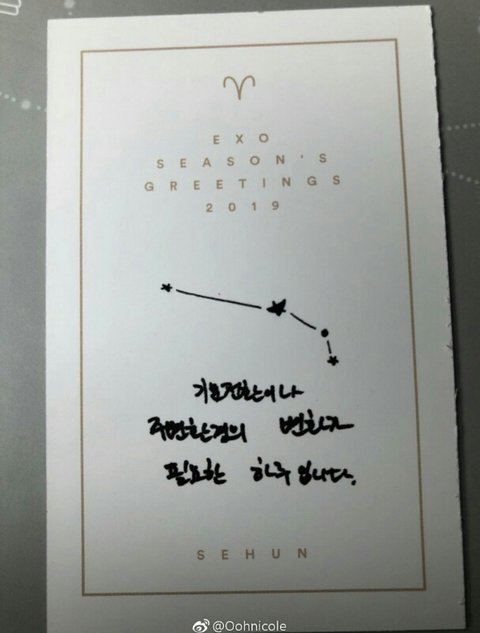 EXO
SEASON'S
GREETINGS
2019
기분전환이나
주변환경의 변화가
필요한 하루 입니다.
SEHUN
@Oohnicole